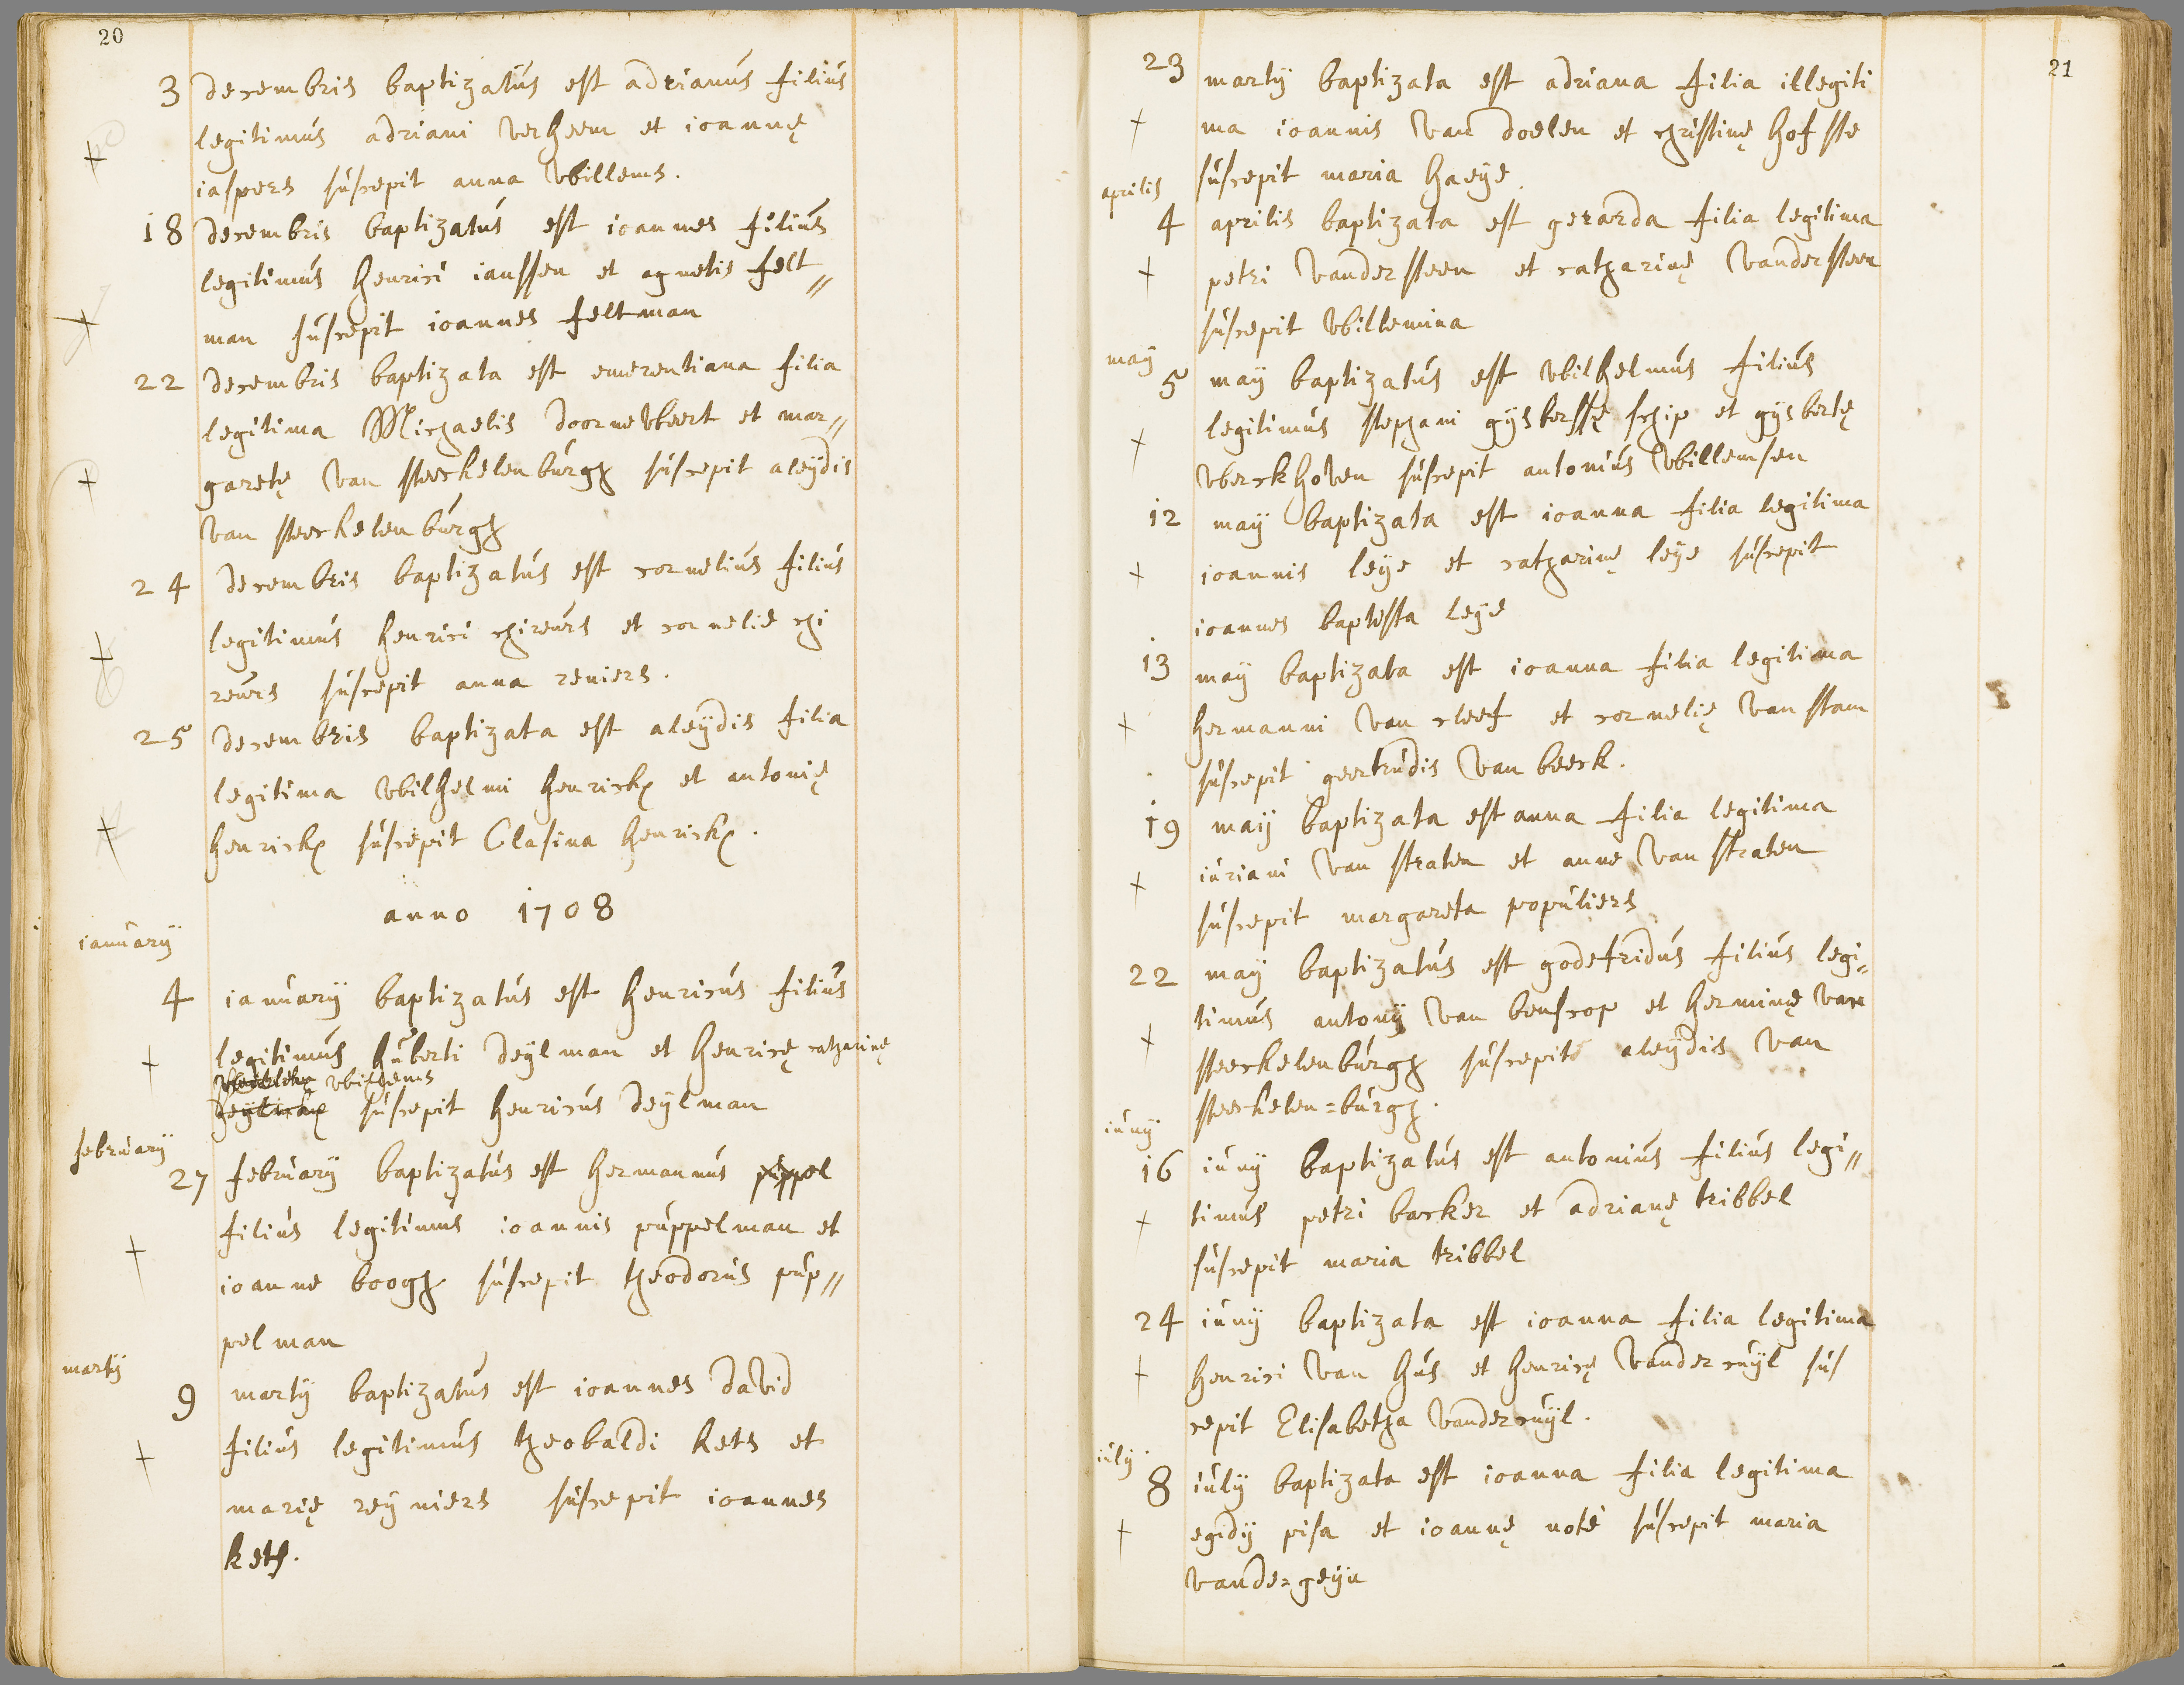 20
3 decembris baptizatus est adrianus filius
legitimus adriani verheem et ioannę
iaspers suscepit anna willems.
18 decembris baptizatus est ioannes filius
legitimus henrici ianssen et agnetis felt„
man suscepit ioannes feltman
22 decembris baptizata est emerentiana filia
legitima Michaelis doorneweert et mar„
garetę van steeckelenburgh suscepit aleÿdis
van steeckelenburgh
24 decembris baptizatus est cornelius filius
legitimus henrici chireurs et cornelie chi
reurs suscepit anna reniers.
25 decembris baptizata est aleÿdis filia
legitima wilhelmi henrickx et antonię
henrickx suscepit Clasina henrickx.
anno 1708
ianuarÿ
4 ianuarÿ baptizatus est henricus filius
legitimus huberti deÿlman et henricę catharinę
willems
suscepit henricus deÿlman
februarÿ
27 februarÿ baptizatus est hermannus puppel
filius legitimus ioannis puppelman et
ioanne boogh suscepit theodorus pup„
pelman
martÿ
9 martÿ baptizatus est ioannes david
filius legitimus theobaldi kets et
marię reÿniers suscepit ioannes
kets.
21
23 martÿ baptizata est adriana filia illegiti
ma ioannis van doelen et christinę hofste
suscepit maria haeÿe
aprilis
4 aprilis baptizata est gerarda filia legitima
petri vandersteen et catharinę vandersteen
suscepit willemina
maÿ
5 maÿ baptizatus est wilhelmus filius
legitimus stephani gÿsbersse schip et gÿsbertę
werckhoven suscepit antonius willemsen
12 maÿ baptizata est ioanna filia legitima
ioannis leÿe et catharinę leÿe suscepit
ioannes baptista leÿe
13 maÿ baptizata est ioanna filia legitima
hermanni van cleef et cornelię van stam
suscepit geertrudis van beeck.
19 maÿ baptizata est anna filia legitima
iuriani van straten et anne van straten
suscepit margareta populiers
22 maÿ baptizatus est godefridus filius legi„
timus antonÿ van benscop et herminę van
steeckelenburgh suscepit aleÿdis van
steeckelen=burgh.
iunÿ
16 iunÿ baptizatus est antonius filius legi„
timus petri backer et adrianę tribbel
suscepit maria tribbel
24 iunÿ baptizata est ioanna filia legitima
henrici van hus et henricę vandercuÿl sus
cepit Elisabetha vandercuÿl.
iulÿ
8 iulÿ baptizata est ioanna filia legitima
egidÿ pisa et ioannę noté suscepit maria
vande=geÿn